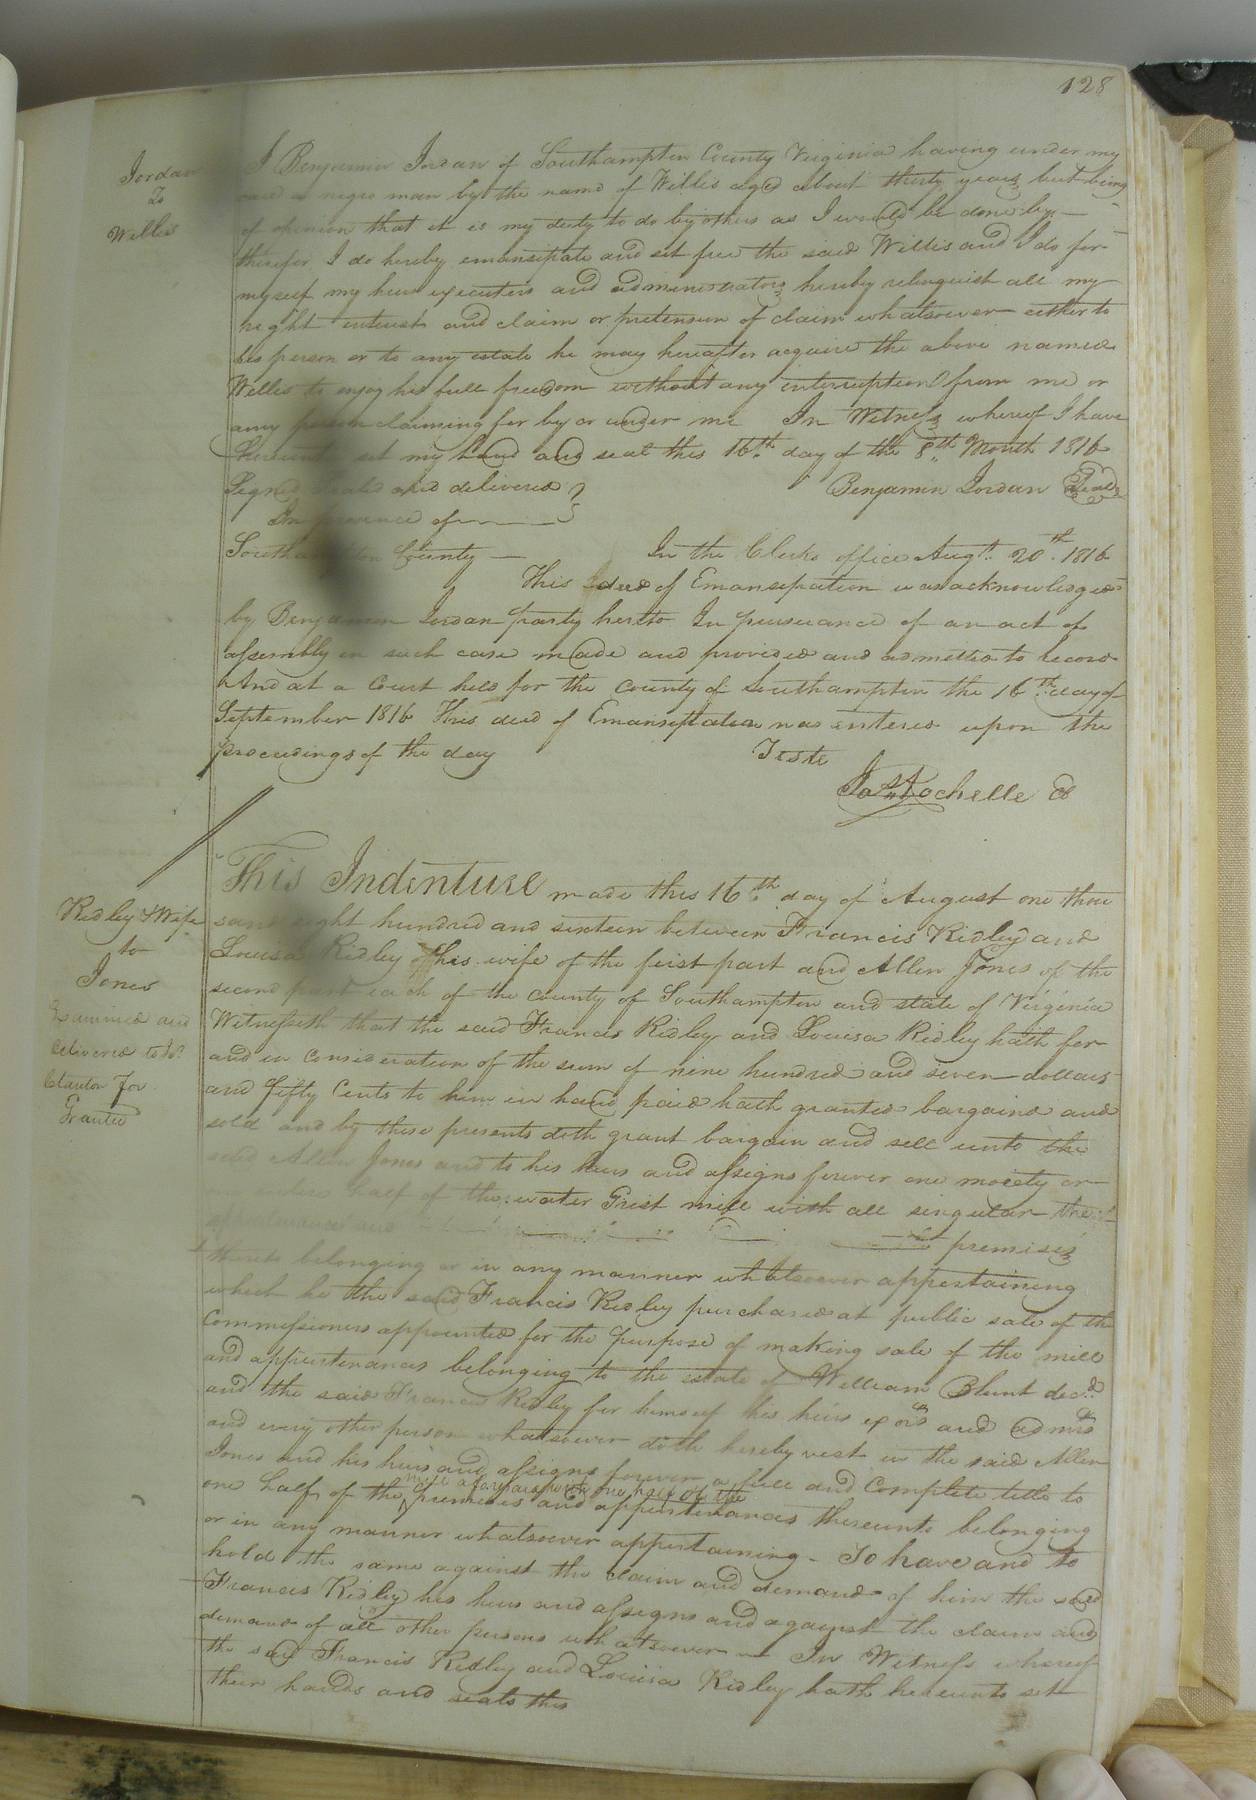 128
Jordan
To
Willis
I Benjamin Jordan of Southampton County Virginia having under my
care a negro man by the name of Willis aged about thirty years but being
of opinion that it is my duty to do by others as I would be done by
therefor I do hereby emansipate and set free the said Willis and I do for
myself my heirs executors and administrators hereby relinquish all my
right interest and claim or pretension of claim whatsoever either to
his person or to any estate he may hereafter acquire the above named
Willis to enjoy his full freedom without any interruption from me or
any person claiming for by or under me In Witness whereof I have
hereunto set my hand and seal this 16th day of the 8th Month 1816
Signed sealed and delivered } Benjamin Jordan Seal
In presence of
Southampton County — In the Clerks office Augt. 20th. 1816
This deed of Emansipation was acknowledged
by Benjamin Jordan party hereto In pursuance of an act of
assembly in such case made and provided and admitted to record
And at a Court held for the County of Southampton the 16th day of
September 1816 This deed of Emansipation was entered upon the
proceedings of the day Teste
Jas Rochelle Cl
Ridley & Wife
to
Jones
Examined and
delivered to
for
Grantee
This Indenture made this 16th. day of August one thou
sand eight hundred and sixteen between Francis Ridley and
Louisa Ridley his wife of the first part and Allen Jones of the
second part each of the county of Southampton and state of Virginia
Witnesseth that the said Francis Ridley and Louisa Ridley hath for
and in consideration of the sum of nine hundred and seven dollars
and fifty Cents to him in hand paid hath granted bargained and
sold and by these presents doth grant bargain and sell unto the
said Allen Jones and to his heirs and assigns forever one moiety or
one half of the water Grist mill with all singular the
appurtenances and premises
thereto belonging or in any manner whatsoever appertaining
which he the said Francis Ridley purchased at public sale of the
Commissioners appointed for the purpose of making sale of the mill
and appurtenances belonging to the estate of William Blunt decd.
and the said Francis Ridley for himself his heirs exors and admrs
and every other person whatsoever doth hereby vest in the said Allen
Jones and his heirs and assigns forever a full and Complete title to
one half of the mill aforesaid with one half of the premises and appurtenances thereunto belonging
or in any manner whatsoever appertaining - To have and to
hold the same against the claim and demand of him the said
Francis Ridley his heirs and assigns and against the claim and
demand of all other persons whatsoever — In Witness whereof
the said Francis Ridley and Louisa Ridley hath hereunto set
their hands and seals this